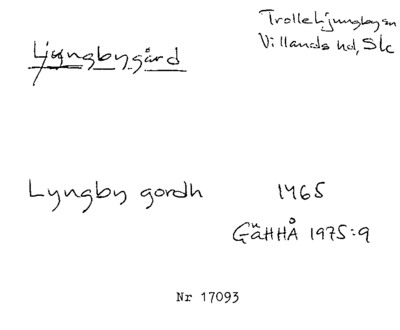 Trolle-Ljungby sn
Villands hd, Sk
Ljungbygård
Lyngby gordh 1465
GäHHÅ 1975:9
Nr 17093